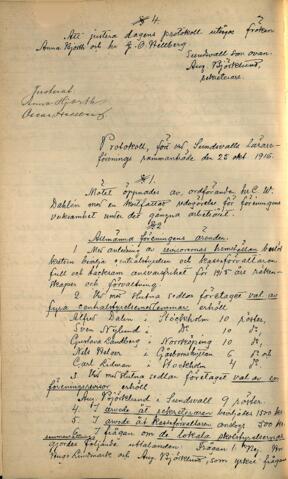 § 4.
Att justera dagens protokoll utsågs fröken
Anna Hjorth och hr E. O. Hellberg.
Sundsvall som ovan.
Aug. Björklund,
sekreterare.
Justerat
Anna Hjorth
Protokoll, fört vid Sundsvalls lärare-
förenings sammanträde den 28 okt. 1916.
§ 1.
Mötet öppnades av ordföranden hr C. W.
Dahlén med en kortfattad redogörelse för föreningens
verksamhet under det gångna arbetsåret.
§ 2.
Allmänna föreningens ärenden.
1. Med anledning av revisorernas hemställan beslöt
kretsen bevilja centralstyrelsen och kassaförvaltaren
full och tacksam ansvarsfrihet för 1915 års räken-
skaper och förvaltning.
2. Vid med slutna sedlar företaget val av
fyra centralstyrelsemedlemmar erhöll
Alfred Dalin i Stockholm 10 röster,
Sven Nylund i D:o 10 d:o,
Gustava Landberg i Norrköping 10 d:o,
Nils i 6 d:o och
Carl Lidman i Stockholm 4 d:o.
3. Vid med slutna sedlar företaget val av
föreningsrevisor erhöll
Aug. Björklund i Sundsvall 9 röster.
4. I arvode åt sekreteraren beviljades 1500 kr.
5. I arvode åt kassaförvaltaren 500 kr.
6. I frågan om de lokala skolstyrelsernas
gjordes följande uttalanden. Frågan 1 Nej.
Hugo Lindmark och Aug. Björklund, som yrkat frågans